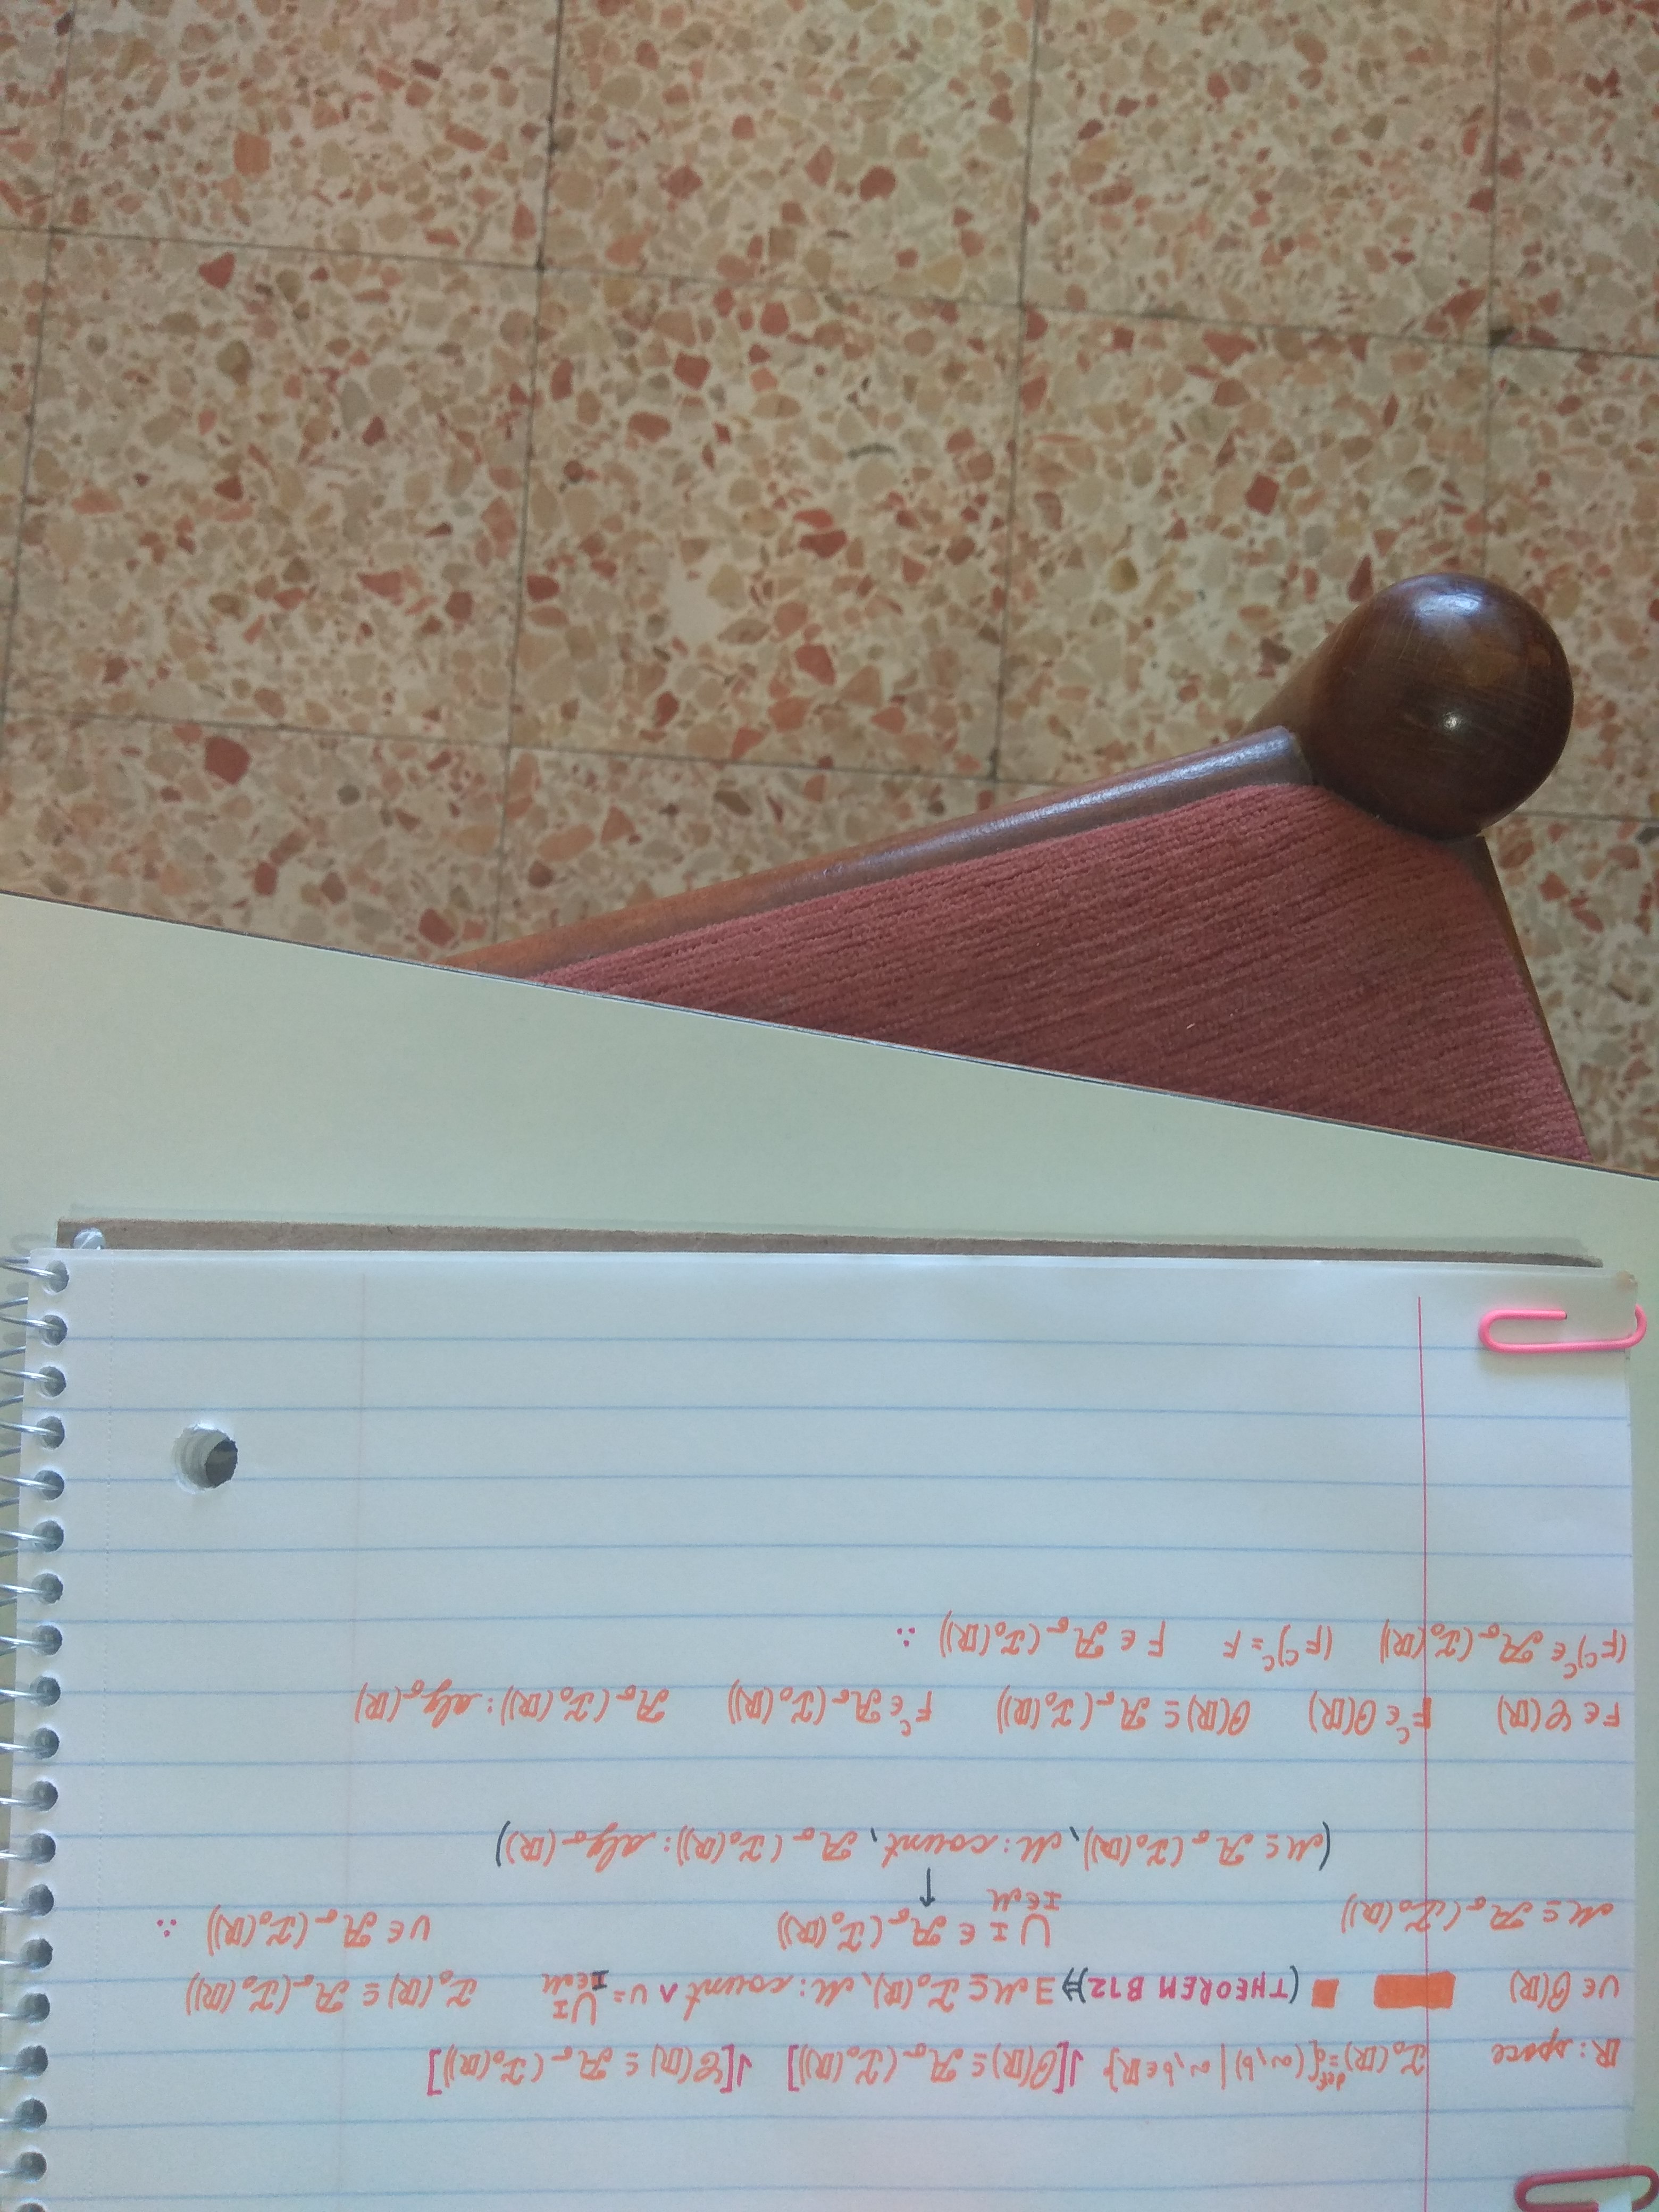 ℝ: space    𝓘₀(ℝ) =def {(a,b) | a,b∈ℝ}    √[𝒪(ℝ) ⊆ 𝓐σ(𝓘₀(ℝ))]    √[𝒞(ℝ) ⊆ 𝓐σ(𝓘₀(ℝ))]
U∈𝒪(ℝ)    (THEOREM B12)⇒) ∃𝓜⊆𝓘₀(ℝ), 𝓜: count ∧ U = ⋃_{I∈𝓜} I    𝓘₀(ℝ) ⊆ 𝓐σ(𝓘₀(ℝ))
𝓜 ⊆ 𝓐σ(𝓘₀(ℝ))    ⋃_{I∈𝓜} I ∈ 𝓐σ(𝓘₀(ℝ))    U∈ 𝓐σ(𝓘₀(ℝ)) ∴
↑
(𝓜 ⊆ 𝓐σ(𝓘₀(ℝ)), 𝓜: count, 𝓐σ(𝓘₀(ℝ)): algσ(ℝ))
F∈𝒞(ℝ)    Fᶜ∈𝒪(ℝ)    𝒪(ℝ) ⊆ 𝓐σ(𝓘₀(ℝ))    Fᶜ∈ 𝓐σ(𝓘₀(ℝ))    𝓐σ(𝓘₀(ℝ)): algσ(ℝ)
(Fᶜ)ᶜ∈ 𝓐σ(𝓘₀(ℝ))    (Fᶜ)ᶜ = F    F∈ 𝓐σ(𝓘₀(ℝ)) ∴